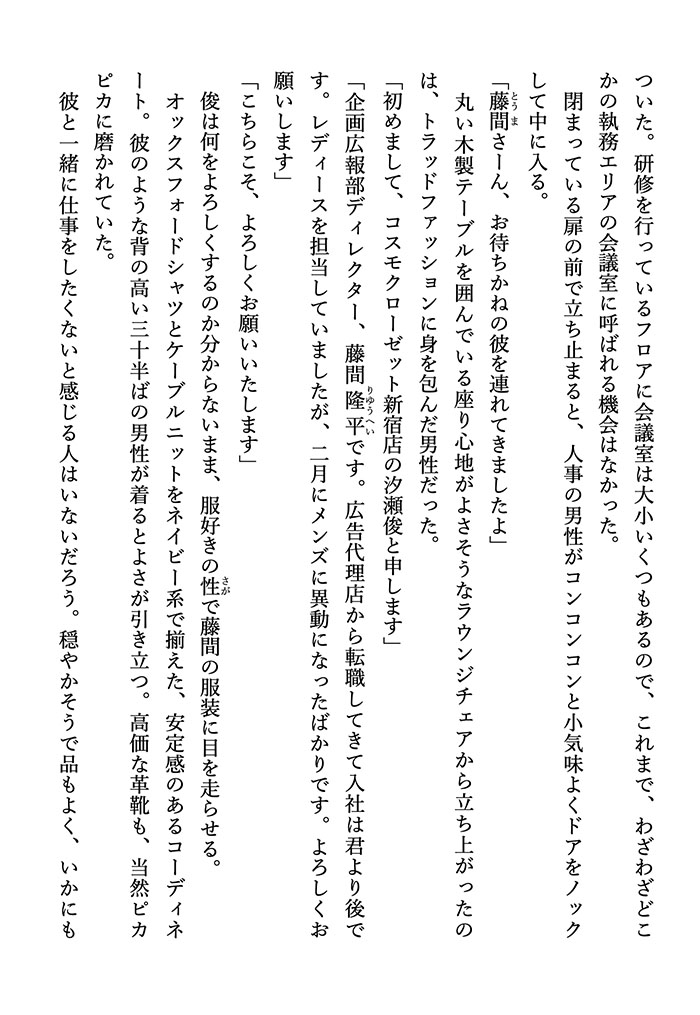 ついた。研修を行っているフロアに会議室は大小いくつもあるので、これまで、わざわざどこ
かの執務エリアの会議室に呼ばれる機会はなかった。
　閉まっている扉の前で立ち止まると、人事の男性がコンコンコンと小気味よくドアをノック
して中に入る。
「藤間さーん、お待ちかねの彼を連れてきましたよ」
とうま
　丸い木製テーブルを囲んでいる座り心地がよさそうなラウンジチェアから立ち上がったの
は、トラッドファッションに身を包んだ男性だった。
「初めまして、コスモクローゼット新宿店の汐瀬俊と申します」
「企画広報部ディレクター、藤間隆平です。広告代理店から転職してきて入社は君より後で
りゆうへい
す。レディースを担当していましたが、二月にメンズに異動になったばかりです。よろしくお
願いします」
「こちらこそ、よろしくお願いいたします」
　俊は何をよろしくするのか分からないまま、服好きの性で藤間の服装に目を走らせる。
さが
　オックスフォードシャツとケーブルニットをネイビー系で揃えた、安定感のあるコーディネ
ート。彼のような背の高い三十半ばの男性が着るとよさが引き立つ。高価な革靴も、当然ピカ
ピカに磨かれていた。
　彼と一緒に仕事をしたくないと感じる人はいないだろう。穏やかそうで品もよく、いかにも